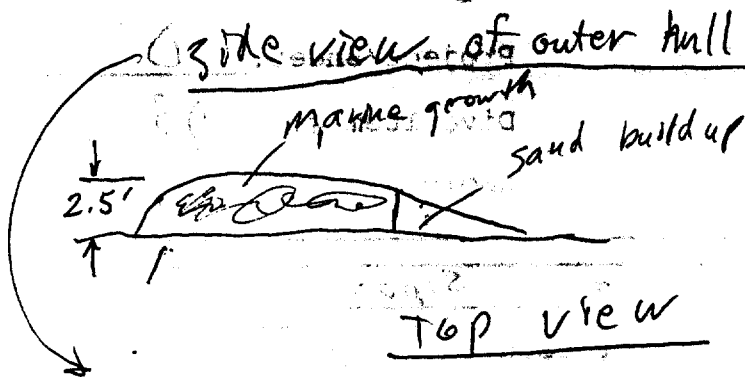 side view of outer hull
marine growth
sand buildup
2.5'
Top view